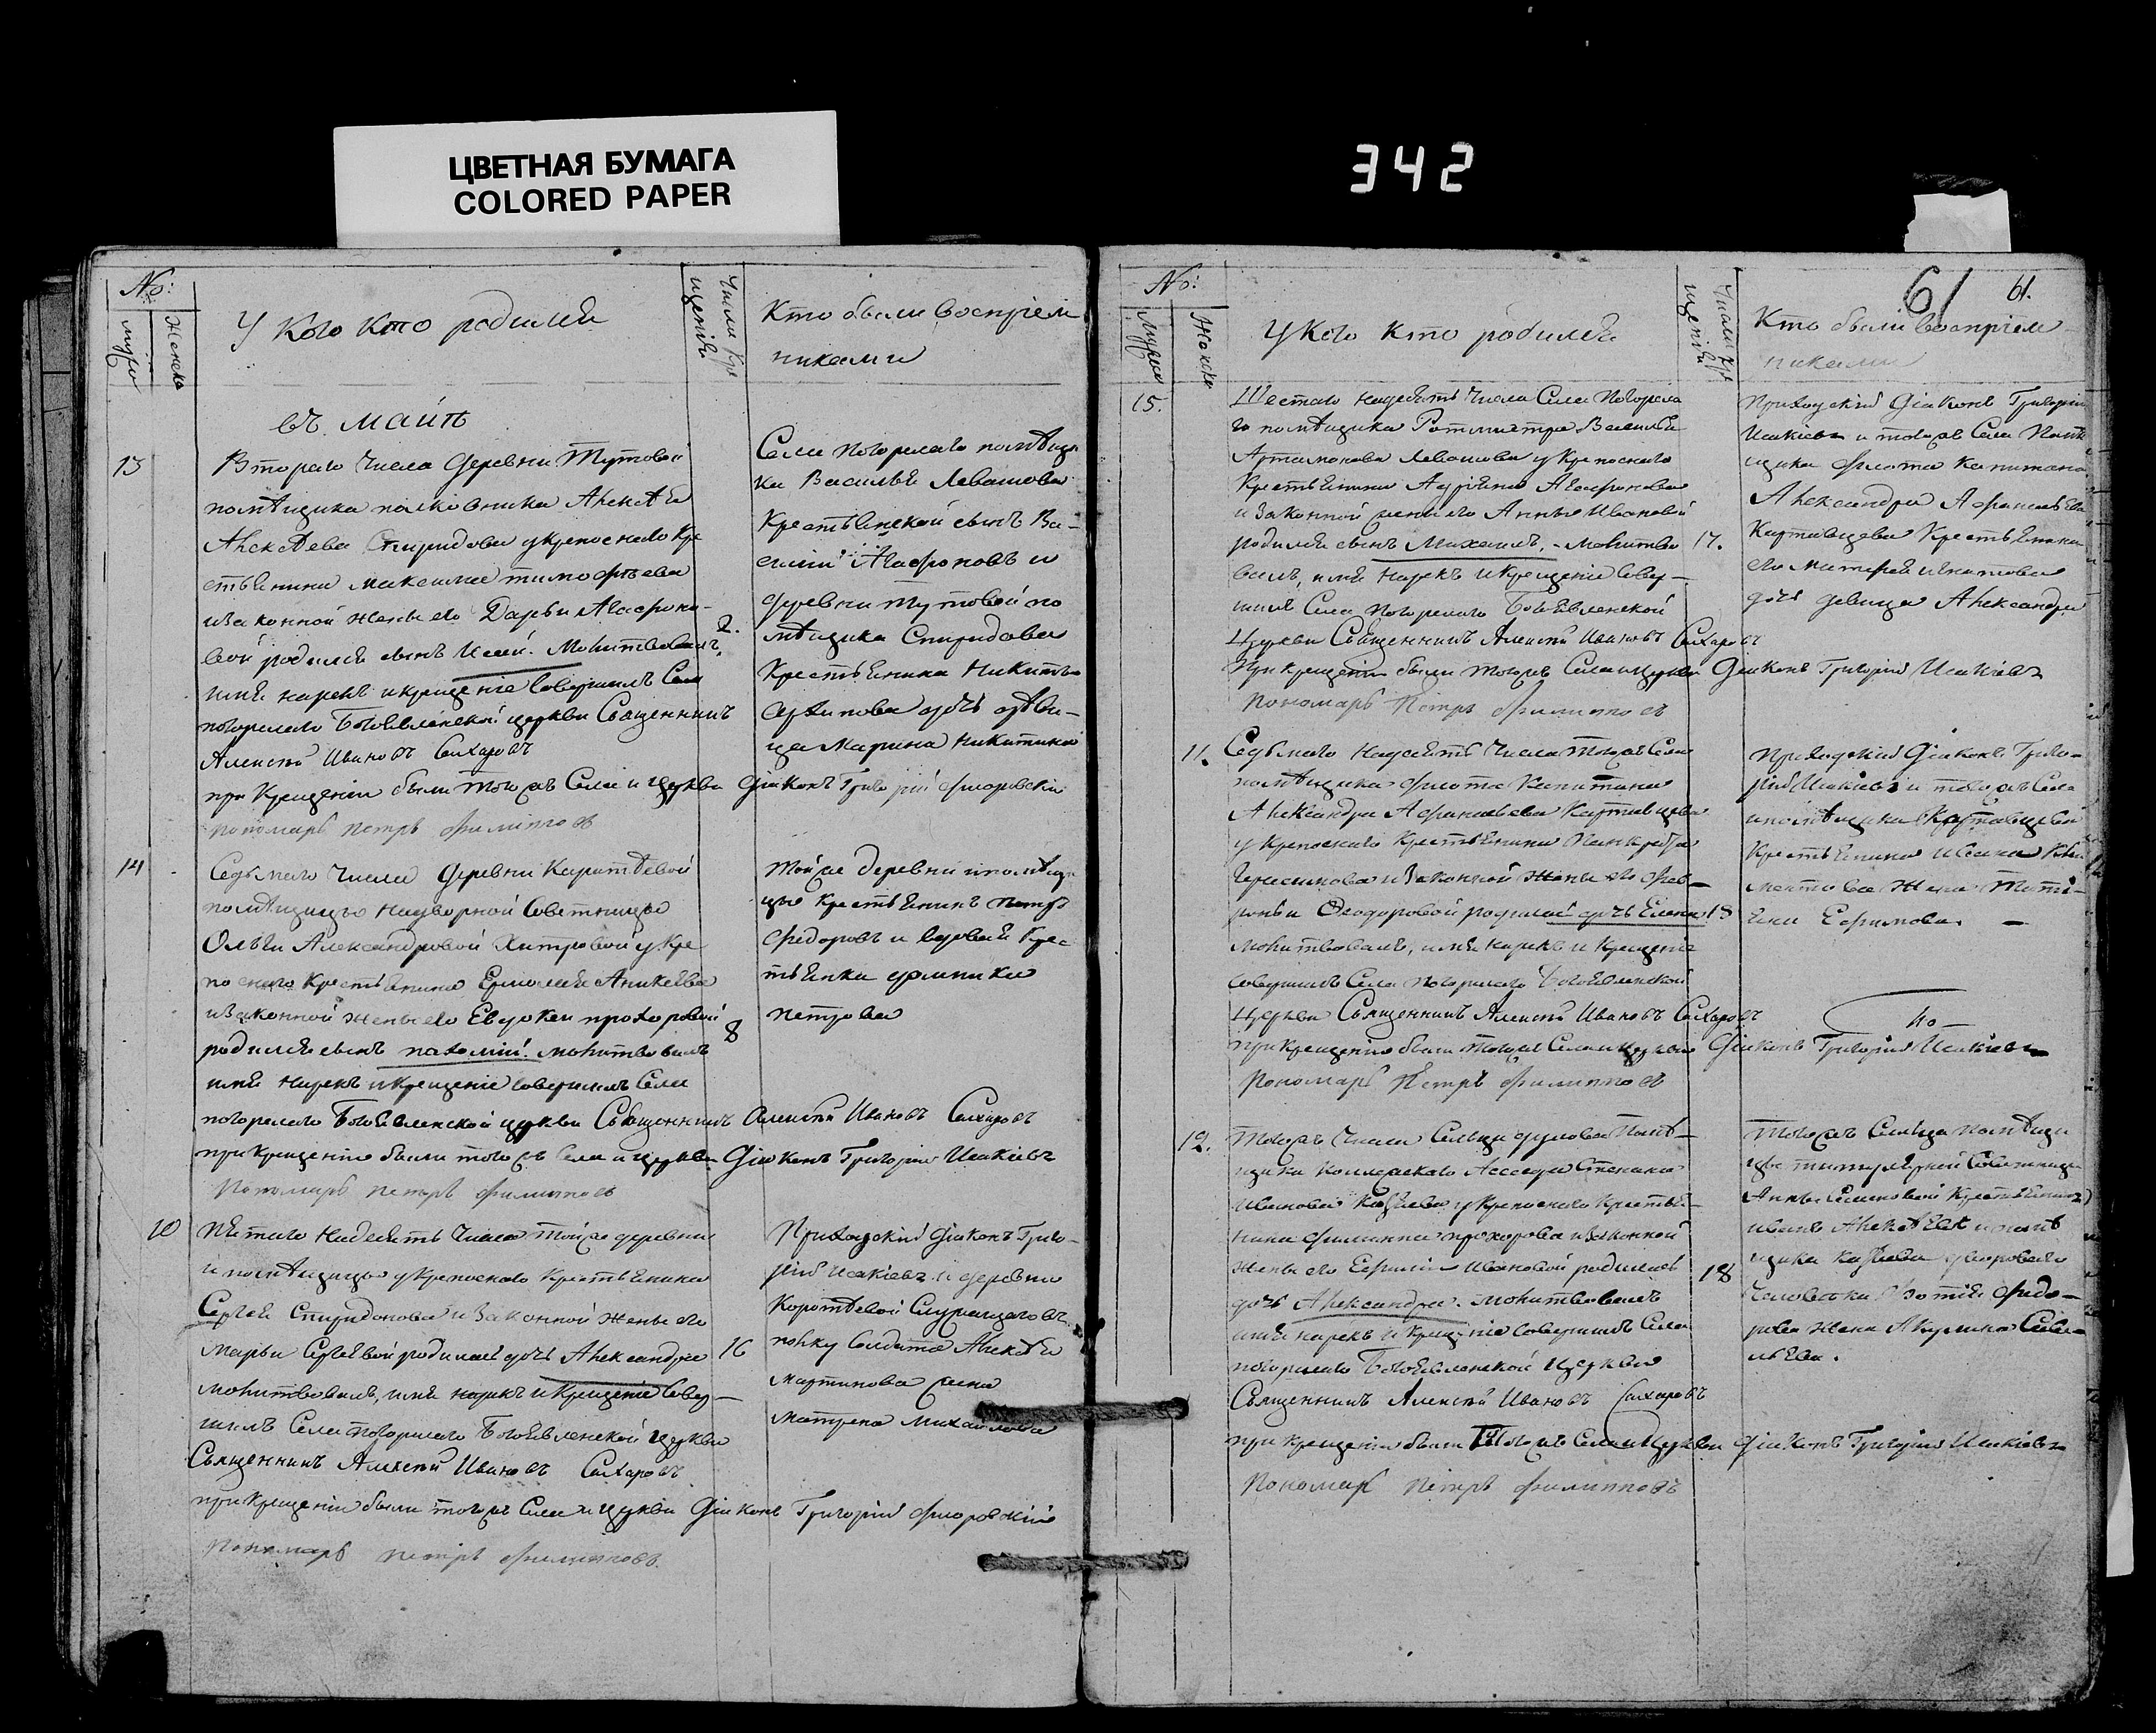 ЦВЕТНАЯ БУМАГА
COLORED PAPER
342
№:
мужеска
Женска
У кого кто родился
Число кре
щенія
Кто были воспріем
никами
въ Маіѣ
13
Втораго числа деревни Тутовой
помѣщика полковника Алексѣя
Алексѣева Спиридова у крепоснаго кре
стьянина Максима Тимофѣева
и законной жены его Дарьи Агафоно-
вой родился сынъ Исай. Молитвовалъ,
имя нарекъ и крещеніе совершилъ Села
погорелаго Богоявленской церкви Священникъ
Алексѣй Ивановъ Сахаровъ
при крещеніи были тогожъ Села и церкви Діаконъ Григорій Флоровскій
пономарь петръ филипповъ
2.
Села погорелаго помѣщи
ка Василья Левашова
Крестьянской сынъ Ва-
силій Агафоновъ и
деревни Тутовой по
мѣщика Спиридова
Крестьянина Никиты
Архипова дочь дѣви-
ца Марина Никитина
14
Седьмаго числа деревни Каритѣевой
помѣщицы надворной Советницы
Ольги Александровой Хитровой у кре
поснаго Крестьянина Ермолая Аникеева
и законной жены его Евдокеи прохоровой
родился сынъ пахомій. молитвовалъ
имя нарекъ и крещеніе совершилъ Села
погорелаго Богоявленской церкви Священникъ Алексѣй Ивановъ Сахаровъ
при крещеніи были тогожъ Села и церкви Діаконъ Григорій Исакіевъ
Пономарь петръ филиповъ
8
Тойже деревни и помѣщи
цы Крестьянинъ петръ
федоровъ и вдовая Крес
тьянка домника
петрова
10
Пятаго надесять числа тойже деревни
и помѣщицы у крепоснаго Крестьянина
Сергея Спиридонова и законной жены его
Марьи Сергѣевой родилась дочь Александра
молитвовалъ, имя нарекъ и крещеніе совер-
шилъ Села погорелаго Богоявленской церкви
Священникъ Алексѣй Ивановъ Сахаровъ
при крещеніи были тогожъ Села и церкви Діаконъ Григорій Флоровскій
Пономарь петръ филипповъ
16
Приходскій Діаконъ Григо-
рій Исакіевъ и деревни
Коротѣевой Служащаго въ
полку Солдата Алексѣя
мартинова жена
матрена михайлова
№:
Мужеска
Женска
У кого кто родился
Число кре
щенія
61 61.
Кто были воспріем-
никами
15.
Шестаго надесять числа Села Погорела
го помѣщика Ротмистра Василья
Артамонова Левашова у крепоснаго
Крестьянина Агафонова
и законной жены его Анны Ивановой
родился сынъ Михаилъ. - молитво
валъ, имя нарекъ и крещеніе совер-
шилъ Села погорелаго Богоявленской
Церкви Священникъ Алексѣй Ивановъ Сахаровъ
При крещеніи были тогожъ Села и церкви Діаконъ Григорій Исакіевъ
Пономарь Петръ филипповъ
17.
Приходскій Діаконъ Григорій
Исакіевъ и тогожъ Села Помѣ
щика флота капитана
Александра Афанасьева
Картавцева Крестьянина
его Матфея Игнатова
дочь девица Александра
11.
Седьмаго надесять числа тогожъ Села
помѣщика флота Капитана
Александра Афанасьева Картавцева
у крепоснаго Крестьянина Панкратья
Герасимова и законной жены его Фев-
роньи Феодоровой родилась дочь Елена
молитвовалъ, имя нарекъ и крещеніе
совершилъ Села погорелаго Богоявленской
Церкви Священникъ Алексѣй Ивановъ Сахаровъ
при крещеніи были тогожъ Села и церкви Діаконъ Григорій Исакіевъ
Пономарь Петръ филипповъ
18
Приходскій Діаконъ Григо-
рій Исакіевъ и тогожъ Села
и помѣщика Картавцева
Крестьянина Исака Кле
ментьева жена Тать-
яна Ефимова. —
12.
Тогожъ числа Сельца дулова Помѣ-
щика Коллежскаго Ассесора Степана
Иванова у крепоснаго Крестья-
нина филиппа прохорова и законной
жены его Ивановой родилась
дочь Александра. молитвовалъ
имя нарекъ и крещеніе совершилъ Села
погорелаго Богоявленской Церкви
Священникъ Алексѣй Ивановъ Сахаровъ
при крещеніи были тогожъ Села и Церкви Діаконъ Григорій Исакіевъ
Пономарь Петръ филипповъ
18
Тогожъ Сельца помѣщи
цы титулярной Советницы
Анны Семеновой Крестьянинъ
иванъ Алексѣевъ и помѣ
щика двороваго
человека федо-
рова жена Акулина Саве-
льева.